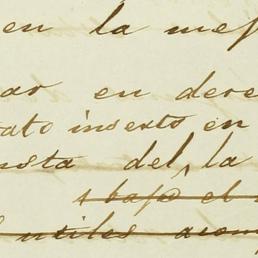 en la mes
ar en dere
ato inserto en
nota del, la
y bajo el
utiles acom